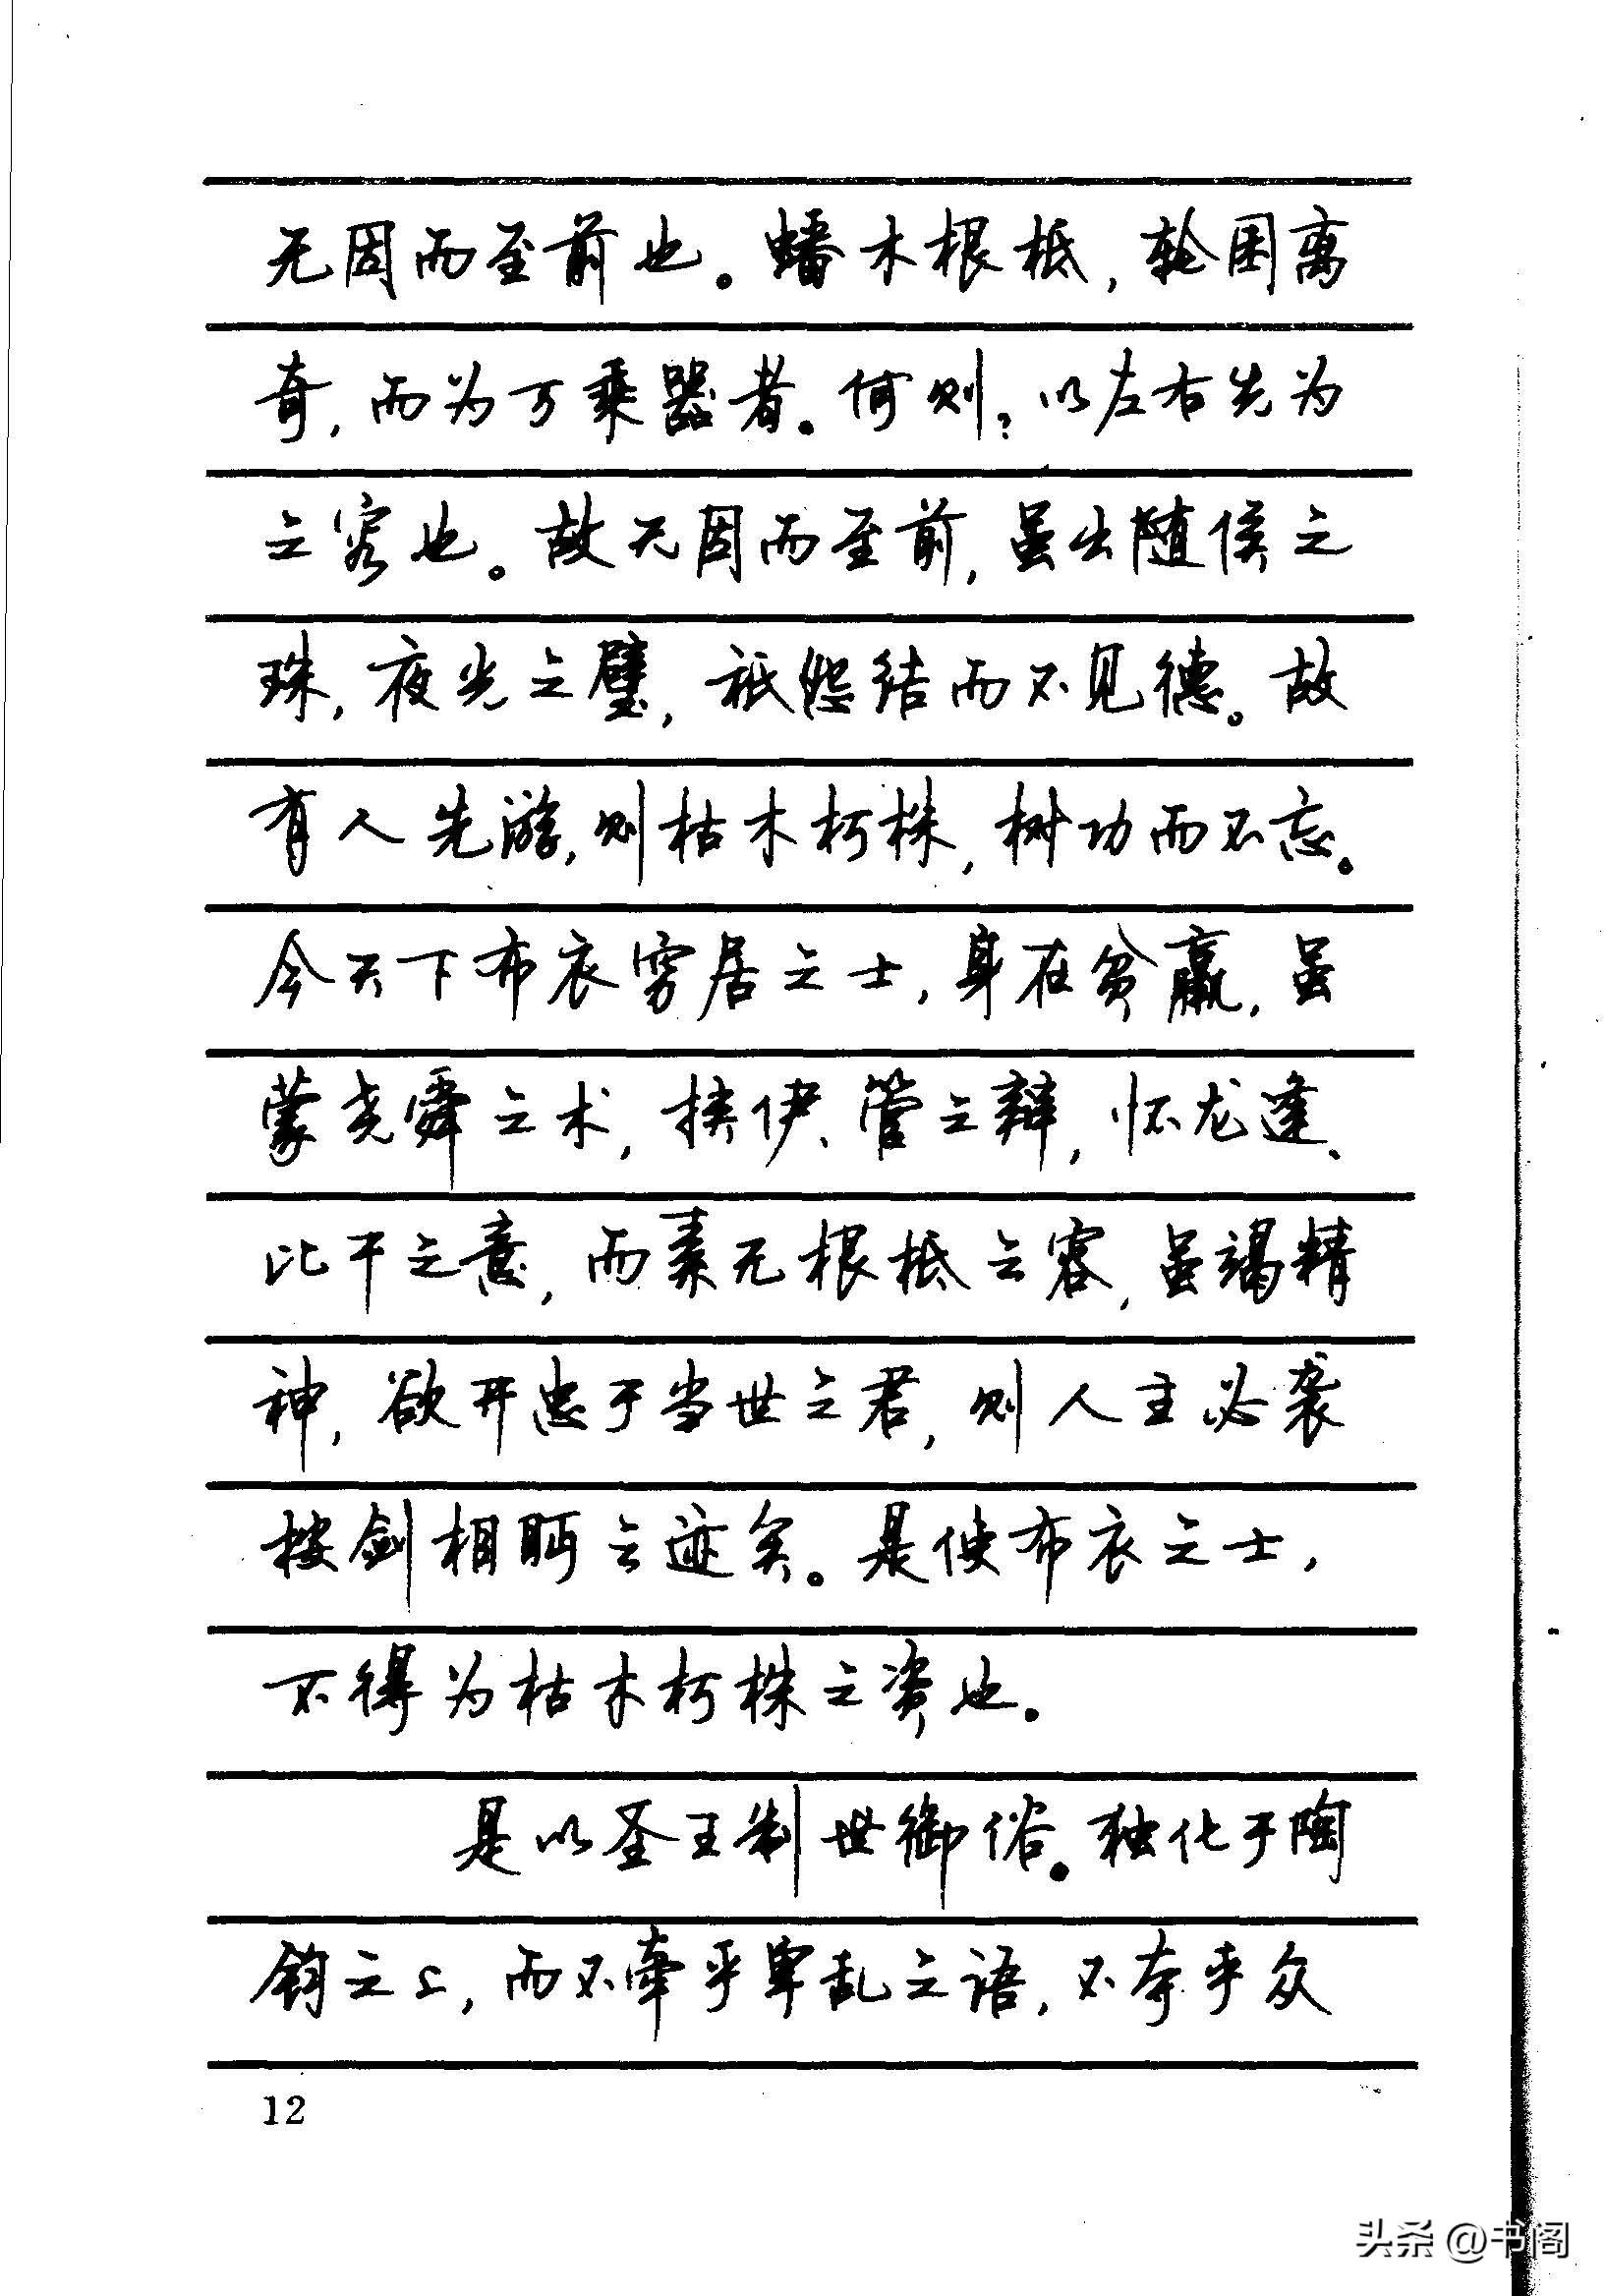 无因而至前也。蟠木根柢,轮囷离
奇,而为万乘器者。何则?以左右先为
之容也。故无因而至前,虽出随侯之
珠,夜光之璧,祇怨结而不见德。故
有人先游,则枯木朽株,树功而不忘。
今天下布衣穷居之士,身在贫羸,虽
蒙尧舜之术,挟伊、管之辩,怀龙逢、
比干之意,而素无根柢之容,虽竭精
神,欲开忠于当世之君,则人主必袭
按剑相眄之迹矣。是使布衣之士,
不得为枯木朽株之资也。
是以圣王制世御俗。独化于陶
钧之上,而不牵乎卑乱之语,不夺乎众
12
头条@书阁